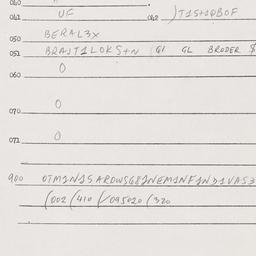 040
041 UF 042 )T1S+1QBOF
050 BERAL3X
051 BRAJT1LOKS+N (GI GL BRODER $
060 0
070 0
071 0
900 OTM1N1SARDWSG81NEM1NF1ND1VAS3
(002 (410 (/095020 (320